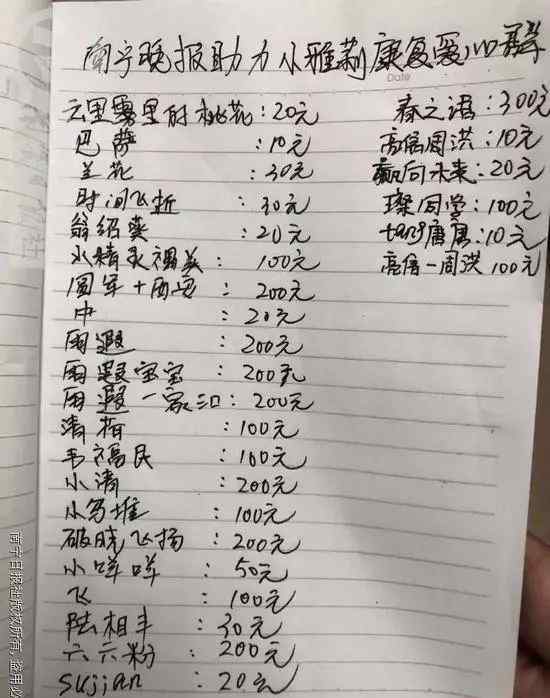 南宁晚报助力小雅莉康复爱心群
Date
云里雾里的桃花:20元
巴萨:10元
兰花:30元
时间飞逝:30元
翁绍英:20元
小精灵福美:100元
圆军+西安:200元
中:20元
雨遐:200元
雨遐宝宝:200元
雨遐一家三口:200元
清梅:100元
韦福民:100元
小清:200元
小多堆:100元
破晓飞扬:200元
小咩咩:50元
飞:100元
陆相丰:30元
六六粉:200元
sujian:20元
春之语:300元
高信周洪:10元
赢向未来:20元
璨同学:100元
tang唐唐:10元
高信一周洪100元
南宁日报社版权所有,盗用必